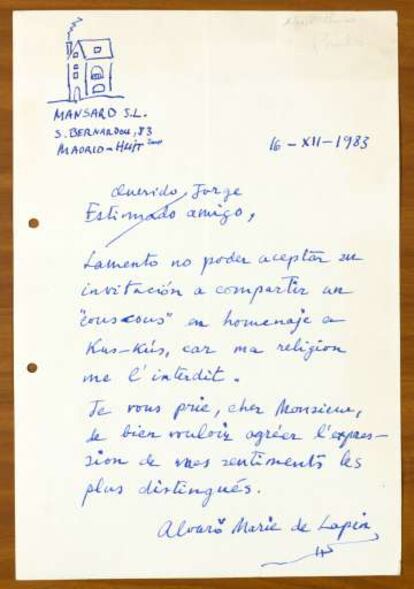 MANSARD S.L.
S. BERNARDO, 83
MADRID-
16-XII-1983
Querido Jorge
Estimado amigo,
Lamento no poder aceptar su
invitación a compartir un
"couscous" en homenaje a
Kus-Kús, car ma religion
me l'interdit.
Je vous prie, cher Monsieur,
de bien vouloir agréer l'expres-
sion de mes sentiments les
plus distingués.
Alvaro Marie de Lapin